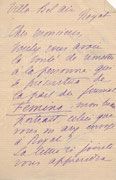 Villa Bel Air
Royat
Cher monsieur,
Voulez vous avoir
la bonté de remettre
à la personne que
de la part du journal
Femina, mon
portrait celui que
vous m'avez envoyé
à Royat !
la lettre ci jointe
vous apprendra